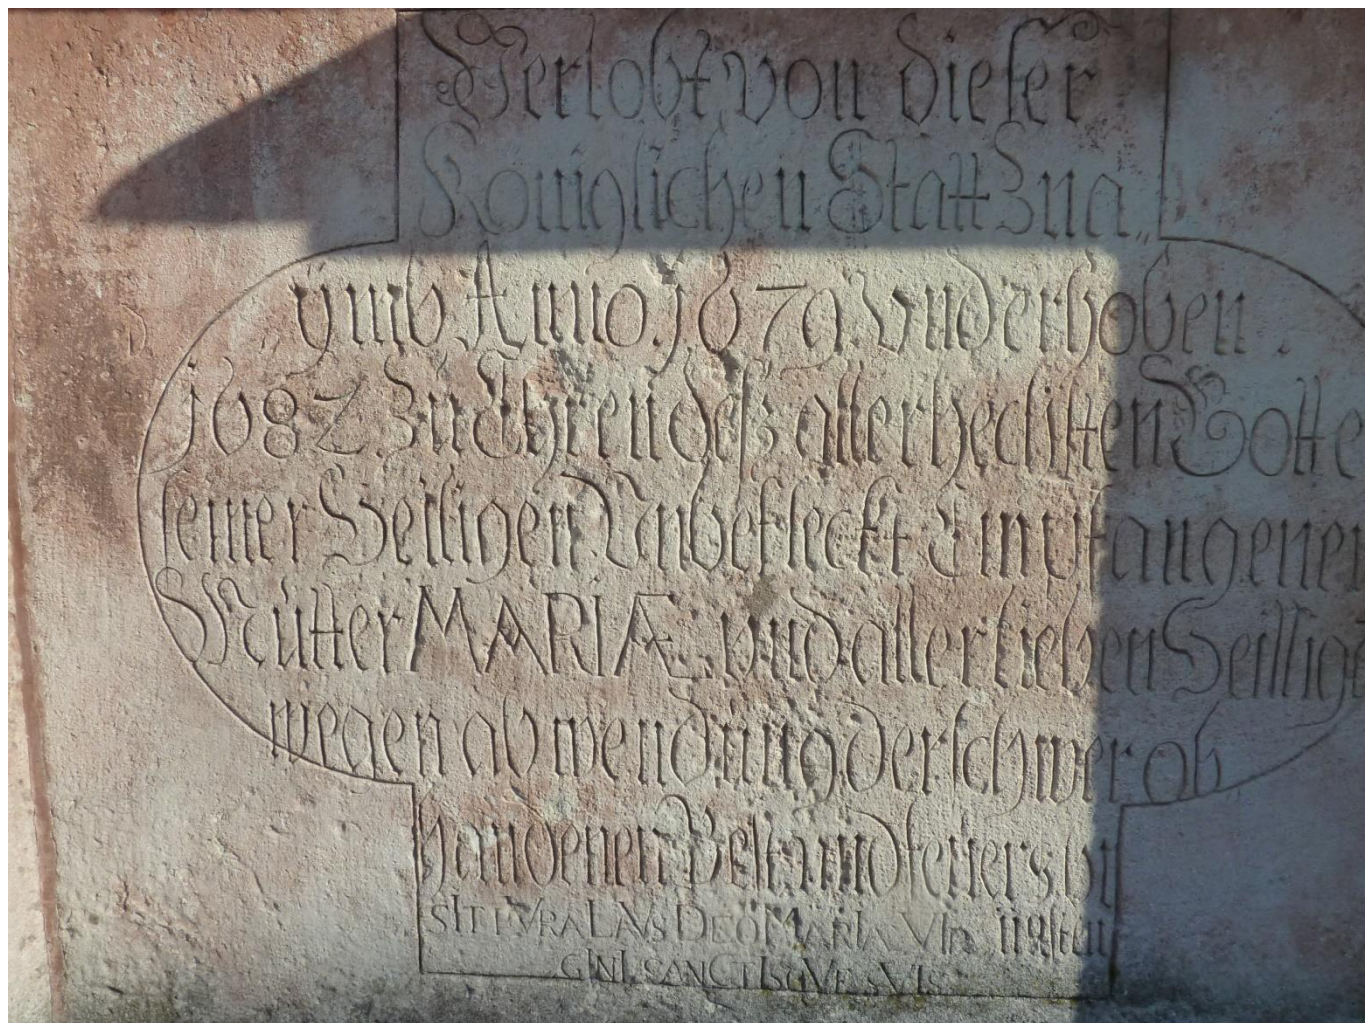 Verlobt von dieser
Königlichen Statt Zna„
„ymb Anno. 1679. Vnd erhoben.
1682 Zu Ehren deß allerhechsten Gotte
seiner Heilligen Vnbefleckt Empfangener
Mutter MARIÆ vnd aller lieben Heillige
wegen abwendung der schwer ob
handenen Pest vnd feuers bri
SIT PVRA LAVS DEO MARIÆ VIR nnsten
GINI SANCTISQVE SVIS